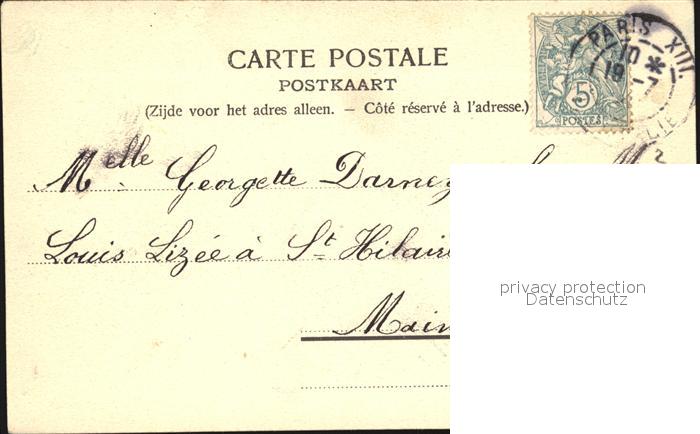 CARTE POSTALE
POSTKAART
(Zijde voor het adres alleen. – Côté réservé à l'adresse.)
5c
POSTES
PARIS XIII.
10
19
Melle Georgette
Louis Lizée à St Hilaire
privacy protection
Datenschutz